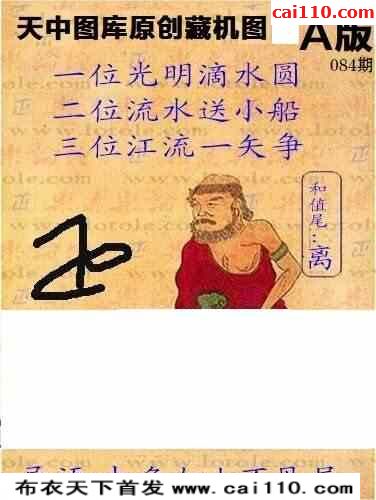 cai110.com
天中图库原创藏机图 A版
084期
一位光明滴水圆
二位流水送小船
三位江流一矢争
和值尾：离
布衣天下首发 www.cai110.com